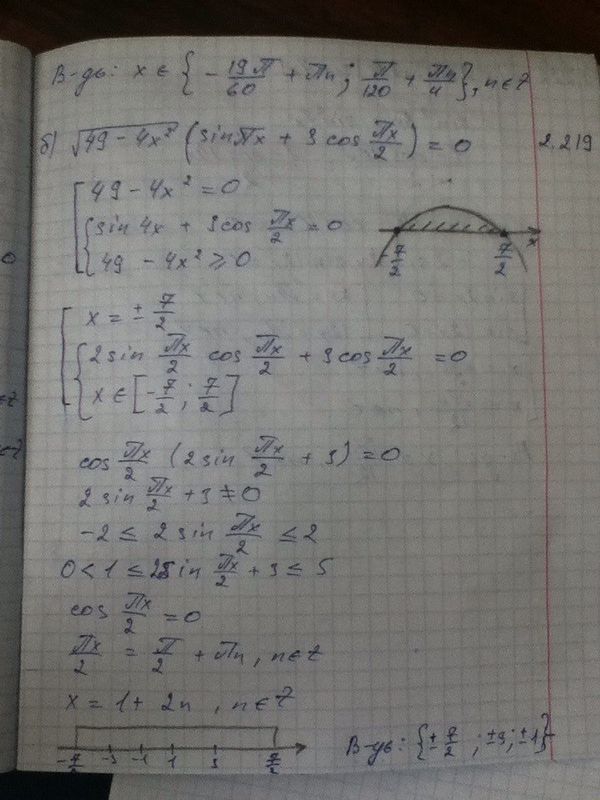 В-дь: x ∈ {-19π/60 + πn; π/120 + πn/4}, n∈Z
б) √(49 - 4x²) (sin πx + 3 cos πx/2) = 0 2.219
[ 49 - 4x² = 0
{ sin 4x + 3cos πx/2 = 0
{ 49 - 4x² ≥ 0
-7/2 7/2 x
[ x = ± 7/2
{ 2 sin πx/2 cos πx/2 + 3 cos πx/2 = 0
{ x ∈ [-7/2; 7/2]
cos πx/2 (2 sin πx/2 + 3) = 0
2 sin πx/2 + 3 ≠ 0
-2 ≤ 2 sin πx/2 ≤ 2
0 < 1 ≤ 2 sin πx/2 + 3 ≤ 5
cos πx/2 = 0
πx/2 = π/2 + πn, n∈Z
x = 1 + 2n, n∈Z
-7/2 -3 -1 1 3 7/2
В-дь: {± 7/2; ±3; ±1}